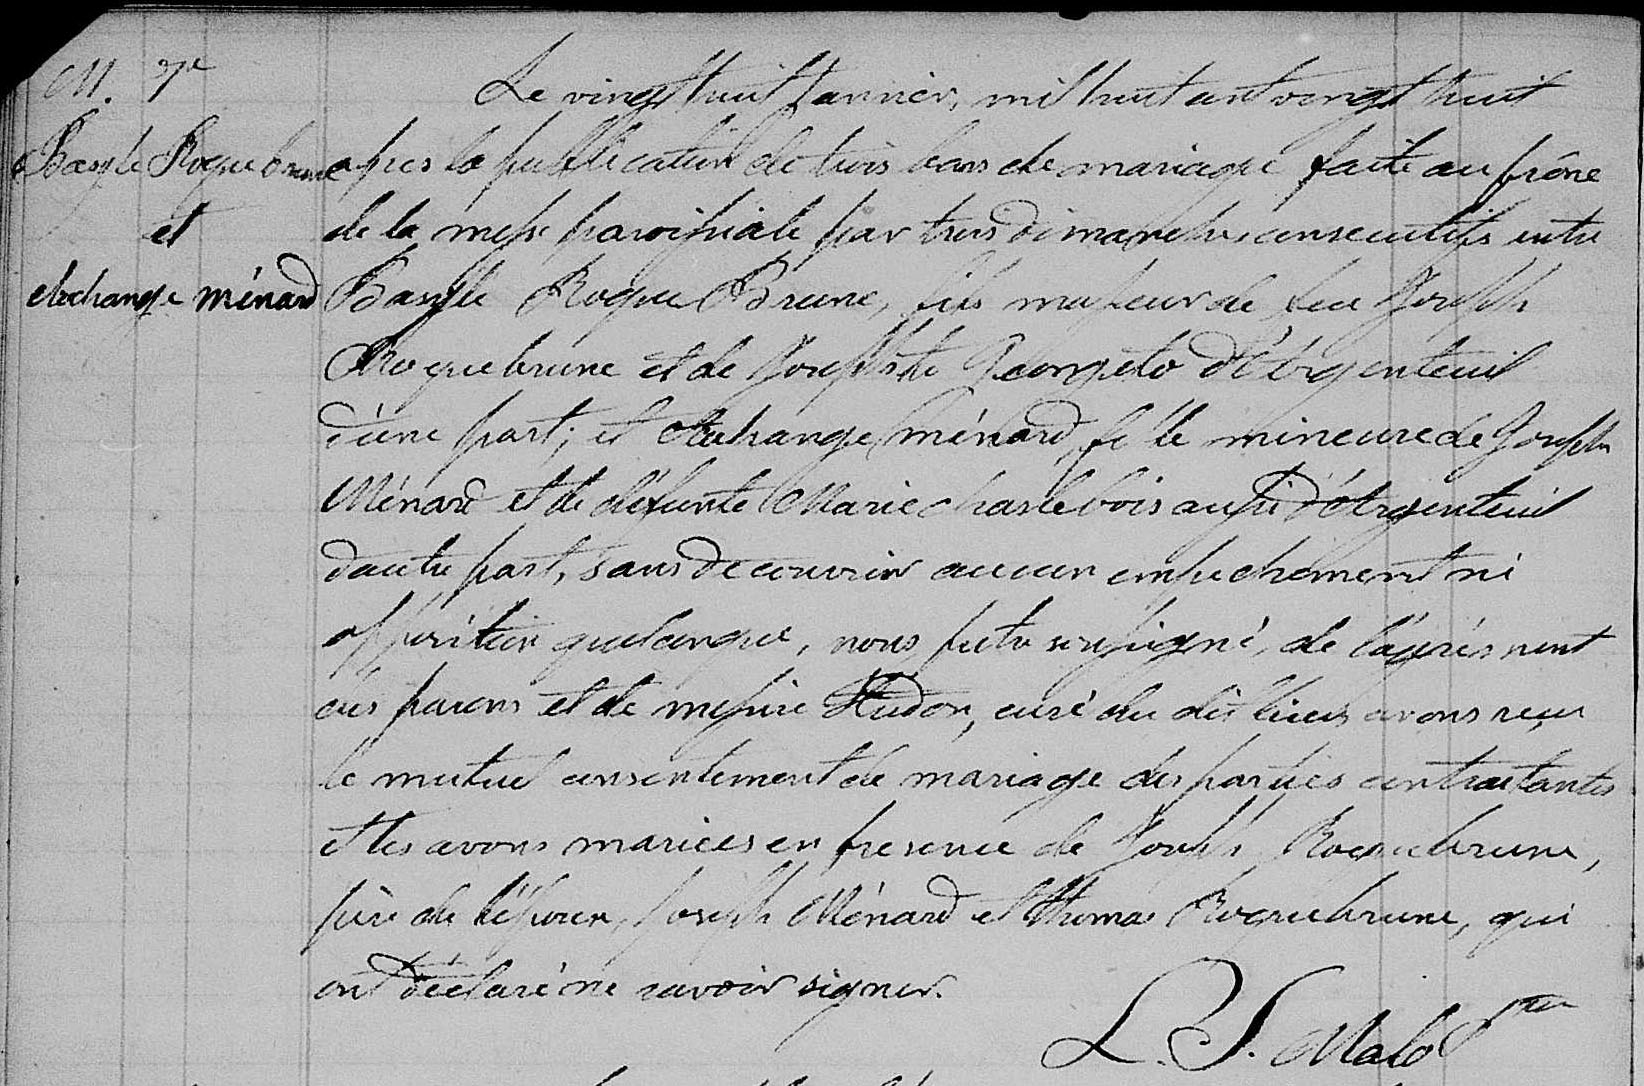 M. 7e
Basyle Roquebrune
et
Archange ménard
Le vingt huit Janvier, mil huit cent vingt huit
apres la publication de trois bans de mariage faite au prône
de la messe paroissiale par trois dimanches consecutifs entre
Basyle Roque Brune, fils majeur de feu Joseph
Roquebrune et de Josephte d'Argenteuil
d'une part; et Archange ménard, fille mineure de Joseph
Ménard et de défunte Marie charlebois aussi d'Argenteuil
d'autre part, sans decouvrir aucun empechement ni
opposition quelconque, nous prêtre soussigné, de l'agrément
des parens et de messire Hudon, curé du dit lieu avons reçu
le mutuel consentement de mariage des parties contractantes
et les avons mariees en presence de Joseph Roquebrune,
père de l'époux, Joseph Ménard et Thomas Roquebrune, qui
ont déclaré ne savoir signer.
L. S. Malo Ptre